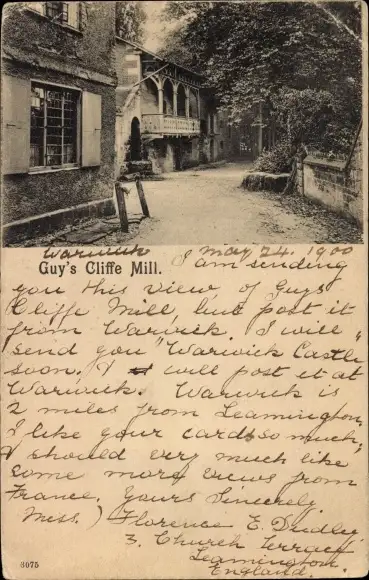 Warwick May 24. 1900
Guy's Cliffe Mill. I am sending
you this view of Guys
Cliffe Mill, but post it
from Warwick. I will
send you "Warwick Castle"
soon. I will post it at
Warwick. Warwick is
2 miles from Leamington,
I like your cards so much,
I should very much like
some more views from
France. Yours Sincerely
Miss.) Florence E. Dudley,
3. Church Terrace
Leamington,
England.
3075